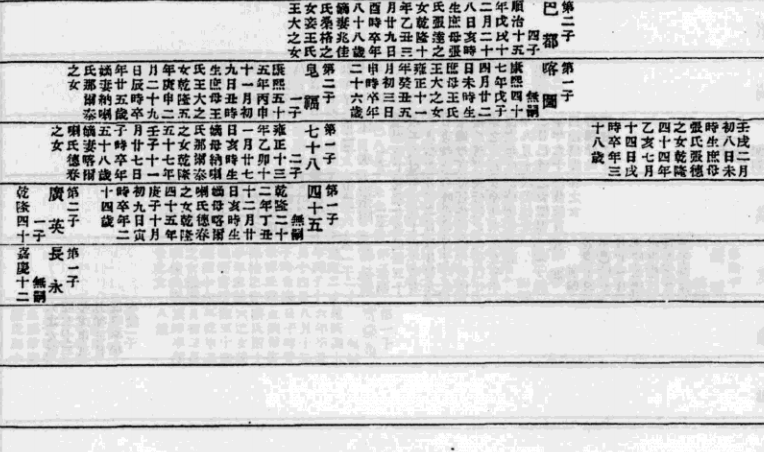 第二子
巴都
四子
順治十五
年戊戌十
二月二十
八日亥時
生庶母張
氏張達之
女乾隆十
年乙丑三
月廿九日
酉時卒年
八十八歲
嫡妻兆佳
氏桑格之
女妾王氏
王大之女
第一子
喀圖
無嗣
康熙四十
七年戊子
四月廿二
日未時生
庶母王氏
王大之女
雍正十一
年癸丑五
月初三日
申時卒年
二十六歲
第二子
皂福
一子
康熙五十
五年丙申
十一月初
九日丑時
生庶母王
氏王大之
女乾隆五
年庚申二
月二十九
日辰時卒
年廿五歲
嫡妻納喇
氏那爾泰
之女
壬戌二月
初八日未
時生庶母
張氏張德
之女乾隆
四十四年
乙亥七月
十四日戌
時卒年三
十八歲
第一子
七十八
二子
雍正十三
年乙卯十
一月廿七
日亥時生
嫡母納喇
氏那爾泰
之女乾隆
五十七年
壬子十一
月廿七日
子時卒年
五十八歲
嫡妻喀爾
喇氏德春
之女
第一子
四十五
無嗣
乾隆二十
二年丁丑
十二月廿
日亥時生
嫡母喀爾
喇氏德春
之女乾隆
四十五年
庚子十月
初九日寅
時卒年二
十四歲
第二子
廣英
一子
乾隆四十
第一子
長永
無嗣
嘉慶十二